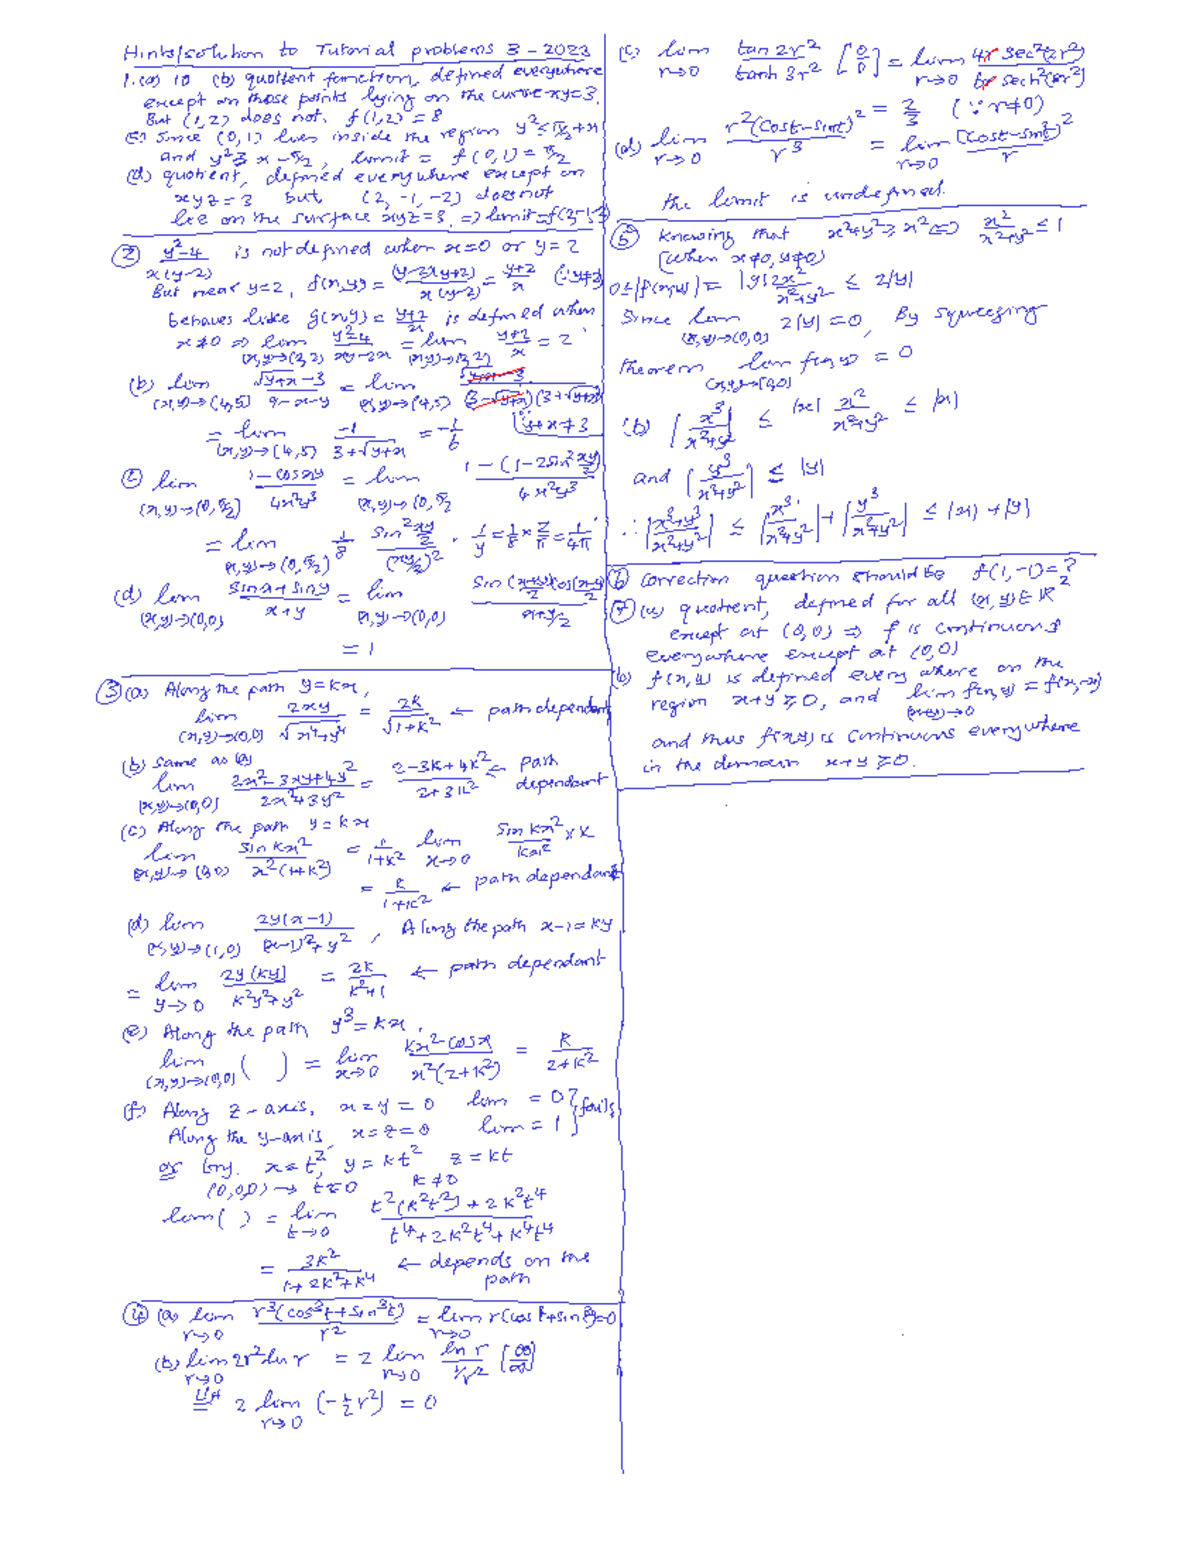 Hints/solution to Tutorial problems 3 - 2023
1. (a) 10 (b) quotient function, defined everywhere
except on those points lying on the curve xy=3.
But (1,2) does not. f(1,2) = 8
(c) Since (0,1) lies inside the region y² ≤ π/2 + x
and y² ≥ x - π/2, limit = f(0,1) = π/2
(d) quotient, defined everywhere except on
xyz = 3 but (2, -1, -2) does not
lie on the surface xyz = 3. => limit = f(2,-1,-2)
② (y²-4)/(x(y-2)) is not defined when x=0 or y=2
But near y=2, f(x,y) = (y-2)(y+2)/(x(y-2)) = (y+2)/x (∵ y≠2)
behaves like g(x,y) = (y+2)/x is defined when
x≠0 => lim (x,y)→(2,2) (y²-4)/(xy-2x) = lim (x,y)→(2,2) (y+2)/x = 2
(b) lim (x,y)→(4,5) (√(y+x) - 3)/(9-x-y) = lim (x,y)→(4,5) (√(y+x) - 3)/((3-√(y+x))(3+√(y+x)))
= lim (x,y)→(4,5) -1/(3+√(y+x)) = -1/6 (∵ y+x≠3
ⓒ lim (x,y)→(0,π/2) (1-cosxy)/(4x²y³) = lim (x,y)→(0,π/2 (1-(1-2sin² xy/2))/(4x²y³)
= lim (x,y)→(0,π/2) 1/8 (sin² xy/2)/(xy/2)² · 1/y = 1/8 × 2/π = 1/4π
(d) lim (x,y)→(0,0) (sinx+siny)/(x+y) = lim (x,y)→(0,0) (sin (x+y)/2 cos(x-y)/2)/(x+y/2)
= 1
③ (a) Along the path y=kx,
lim (x,y)→(0,0) 2xy/√(x⁴+y⁴) = 2k/√(1+k²) ← path dependant
(b) Same as (a)
lim (x,y)→(0,0) (2x²-3xy+4y²)/(2x²+3y²) = (2-3k+4k²)/(2+3k²) ← path dependant
(c) Along the path y=kx
lim (x,y)→(0,0) sin kx²/(x²(1+k²)) = 1/(1+k²) lim x→0 (sin kx²)/(kx²) × k
= k/(1+k²) ← path dependant
(d) lim (x,y)→(1,0) 2y(x-1)/((x-1)²+y²), Along the path x-1=ky
= lim y→0 2y(ky)/(k²y²+y²) = 2k/(k²+1) ← path dependant
(e) Along the path y³=kx,
lim (x,y)→(0,0) ( ) = lim x→0 (kx² cosx)/(x²(2+k²)) = k/(2+k²)
(f) Along z-axis, x=y=0 lim = 0 } fails
Along the y-axis, x=z=0 lim = 1
or try. x=t², y=kt² z=kt
(0,0,0) → t→0 k≠0
lim( ) = lim t→0 (t²(k²t²)+2k²t⁴)/(t⁴+2k²t⁴+k⁴t⁴)
= 3k²/(1+2k²+k⁴) ← depends on the path
④ (a) lim r→0 r³(cos³t+sin³t)/r² = lim r→0 r(cos³t+sin³t)=0
(b) lim r→0 2r² ln r = 2 lim r→0 (ln r)/(1/r²) [∞/∞]
L'H = 2 lim r→0 (-1/2 r²) = 0
(c) lim r→0 (tan 2r²)/(tanh 3r²) [0/0] = lim r→0 (4r sec²(2r²))/(6r sech²(3r²))
= 2/3 (∵ r≠0)
(d) lim r→0 r²(cost-sint)²/r³ = lim r→0 (cost-sint)²/r
the limit is undefined.
⑤ knowing that x²+y² ≥ x² <=> x²/(x²+y²) ≤ 1
(when x≠0, y≠0)
0≤|f(x,y)| = |y|2x²/(x²+y²) ≤ 2|y|
Since lim (x,y)→(0,0) 2|y| = 0, By squeezing
theorem lim (x,y)→(0,0) f(x,y) = 0
(b) |x³/(x²+y²)| ≤ |x| x²/(x²+y²) ≤ |x|
and |y³/(x²+y²)| ≤ |y|
∴ |(x³+y³)/(x²+y²)| ≤ |x³/(x²+y²)| + |y³/(x²+y²)| ≤ |x| + |y|
⑥ correction question should be f(1,-1)=?
⑦ (a) quotient, defined for all (x,y)∈ R²
except at (0,0) => f is continuous
everywhere except at (0,0)
(b) f(x,y) is defined every where on the
region x+y ≥ 0, and lim (x+y)→0 f(x,y) = f(x,-x)
and thus f(x,y) is continuous everywhere
in the domain x+y ≥ 0.